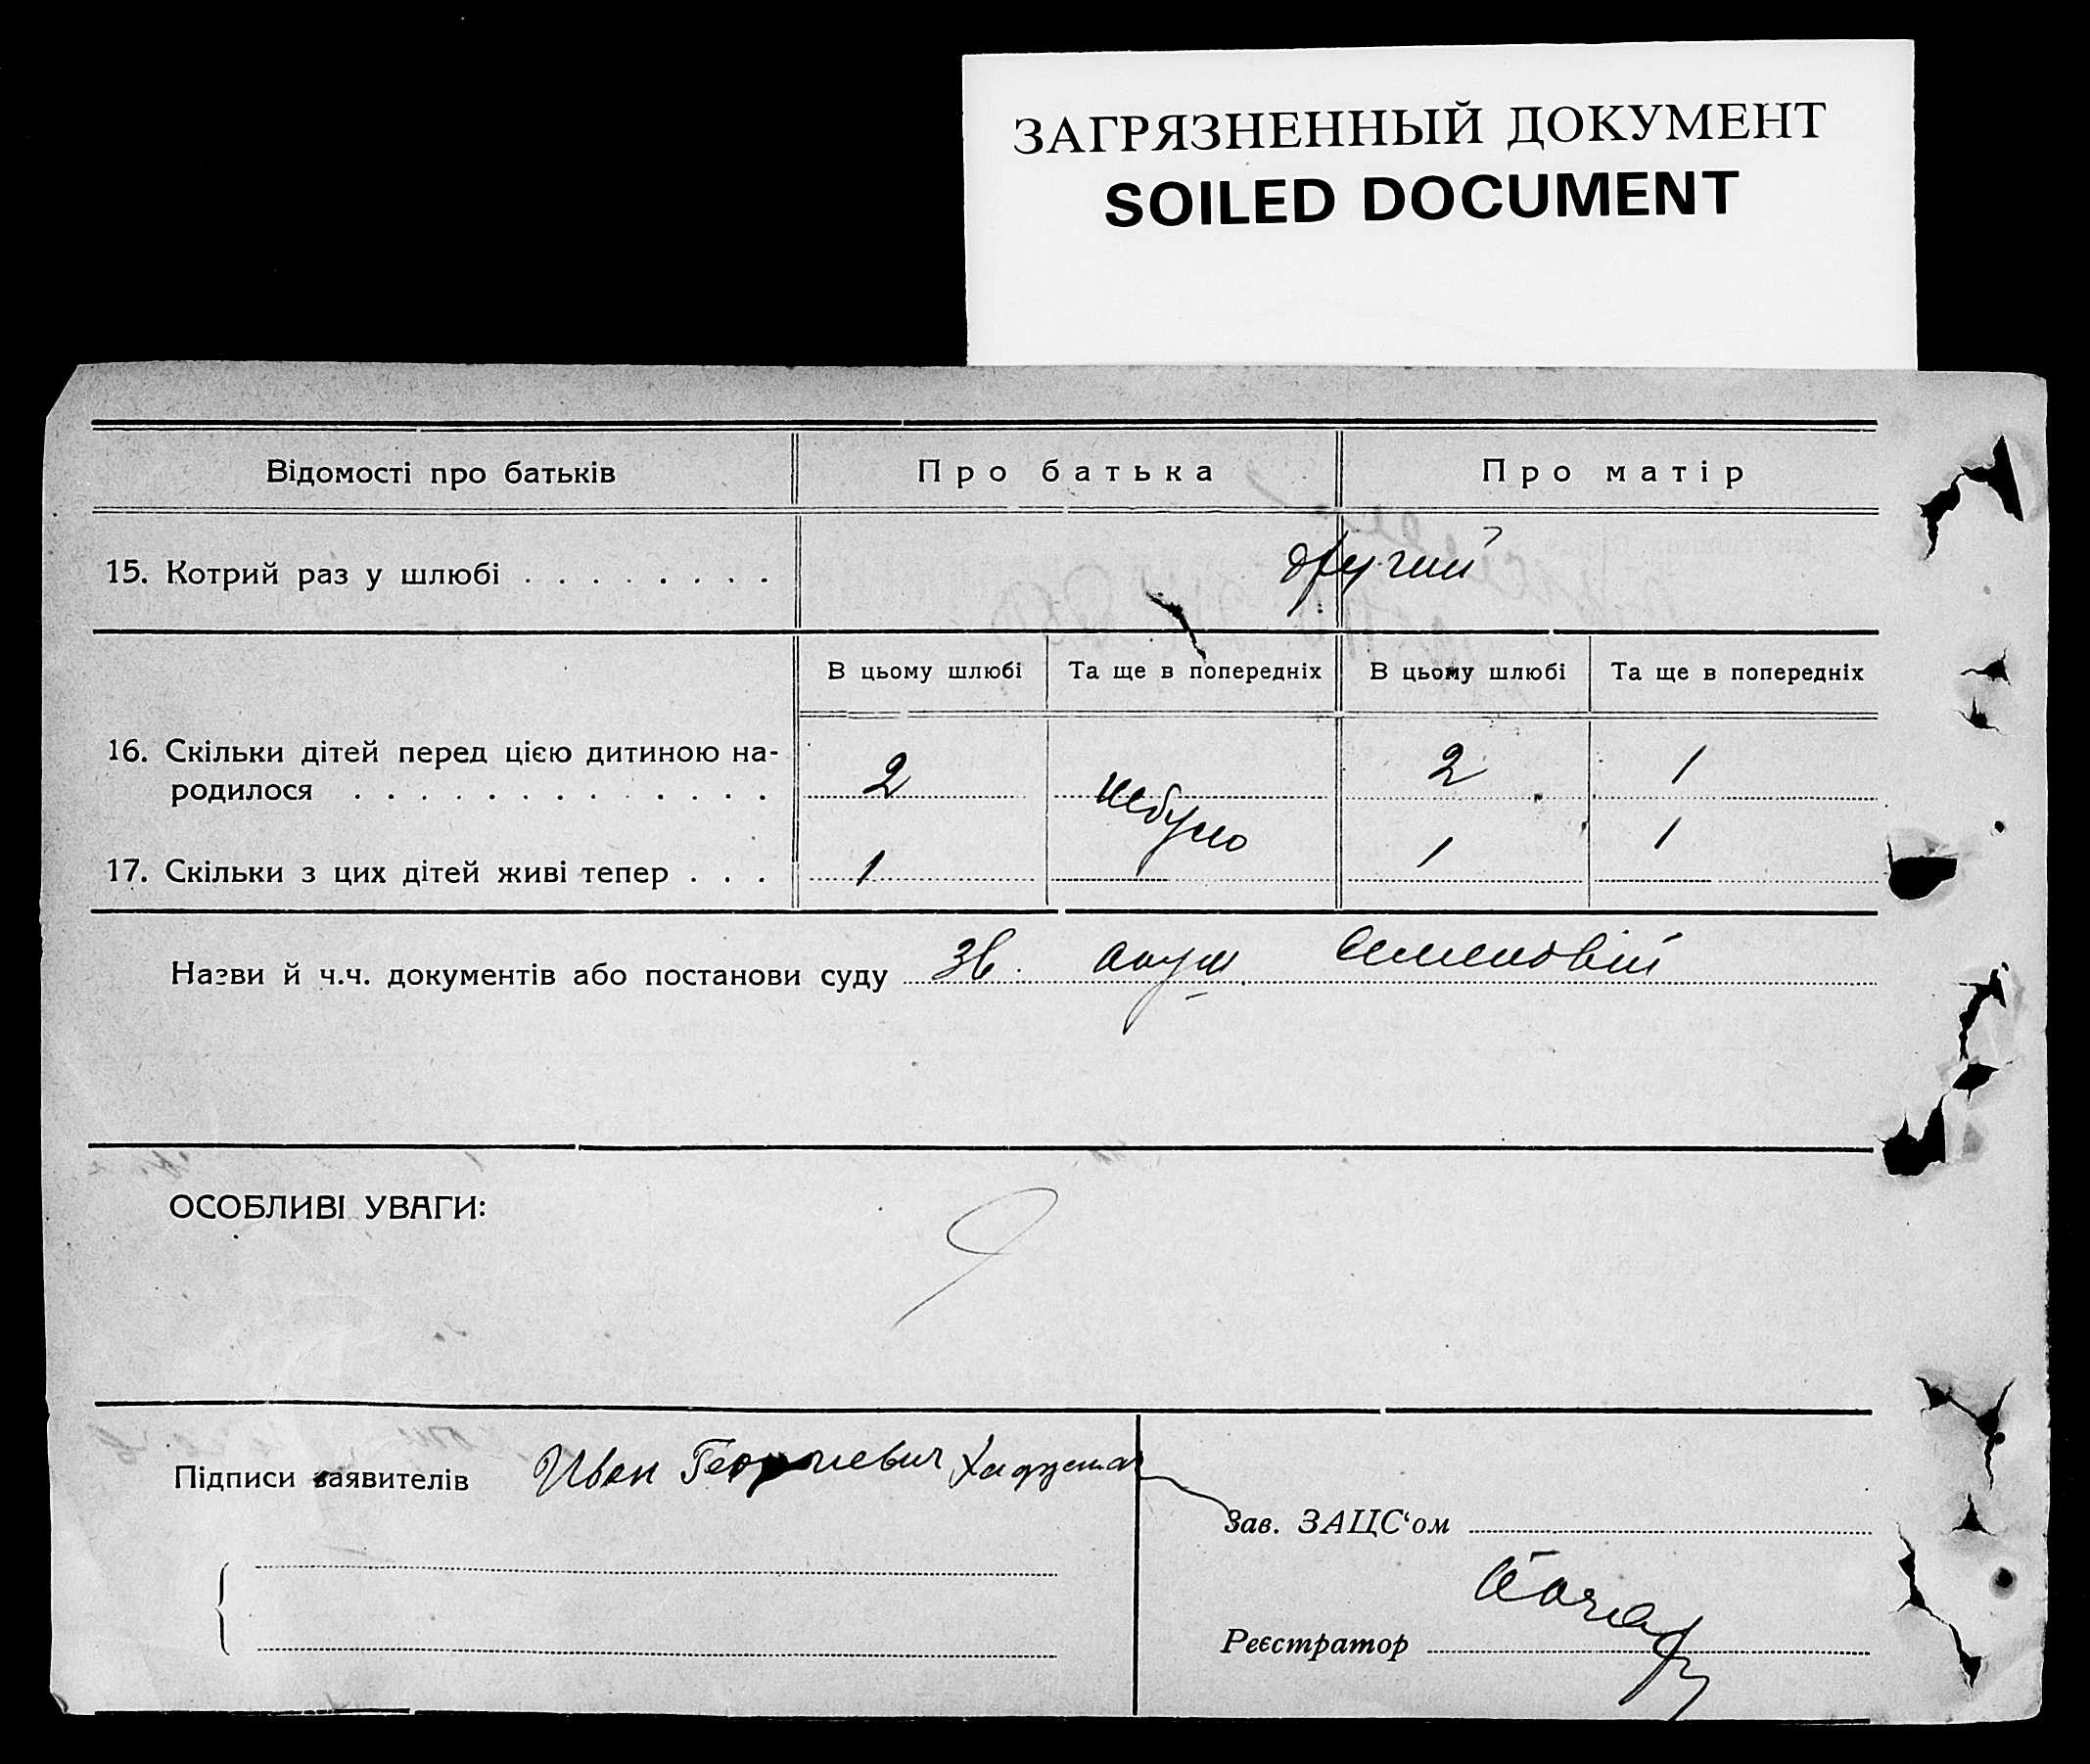 ЗАГРЯЗНЕННЫЙ ДОКУМЕНТ
SOILED DOCUMENT
Відомості про батьків Про батька Про матір
15. Котрий раз у шлюбі . . . . . . . . другий
В цьому шлюбі Та ще в попередніх В цьому шлюбі Та ще в попередніх
16. Скільки дітей перед цією дитиною на-
родилося . . . . . . . . . . . . . 2 небуло 2 1
17. Скільки з цих дітей живі тепер . . . 1 1 1
Назви й ч.ч. документів або постанови суду Зв. акуш Семеновій
ОСОБЛИВІ УВАГИ:
Підписи заявителів Иван Георгиевич
Зав. ЗАЦС‘ом
Реєстратор